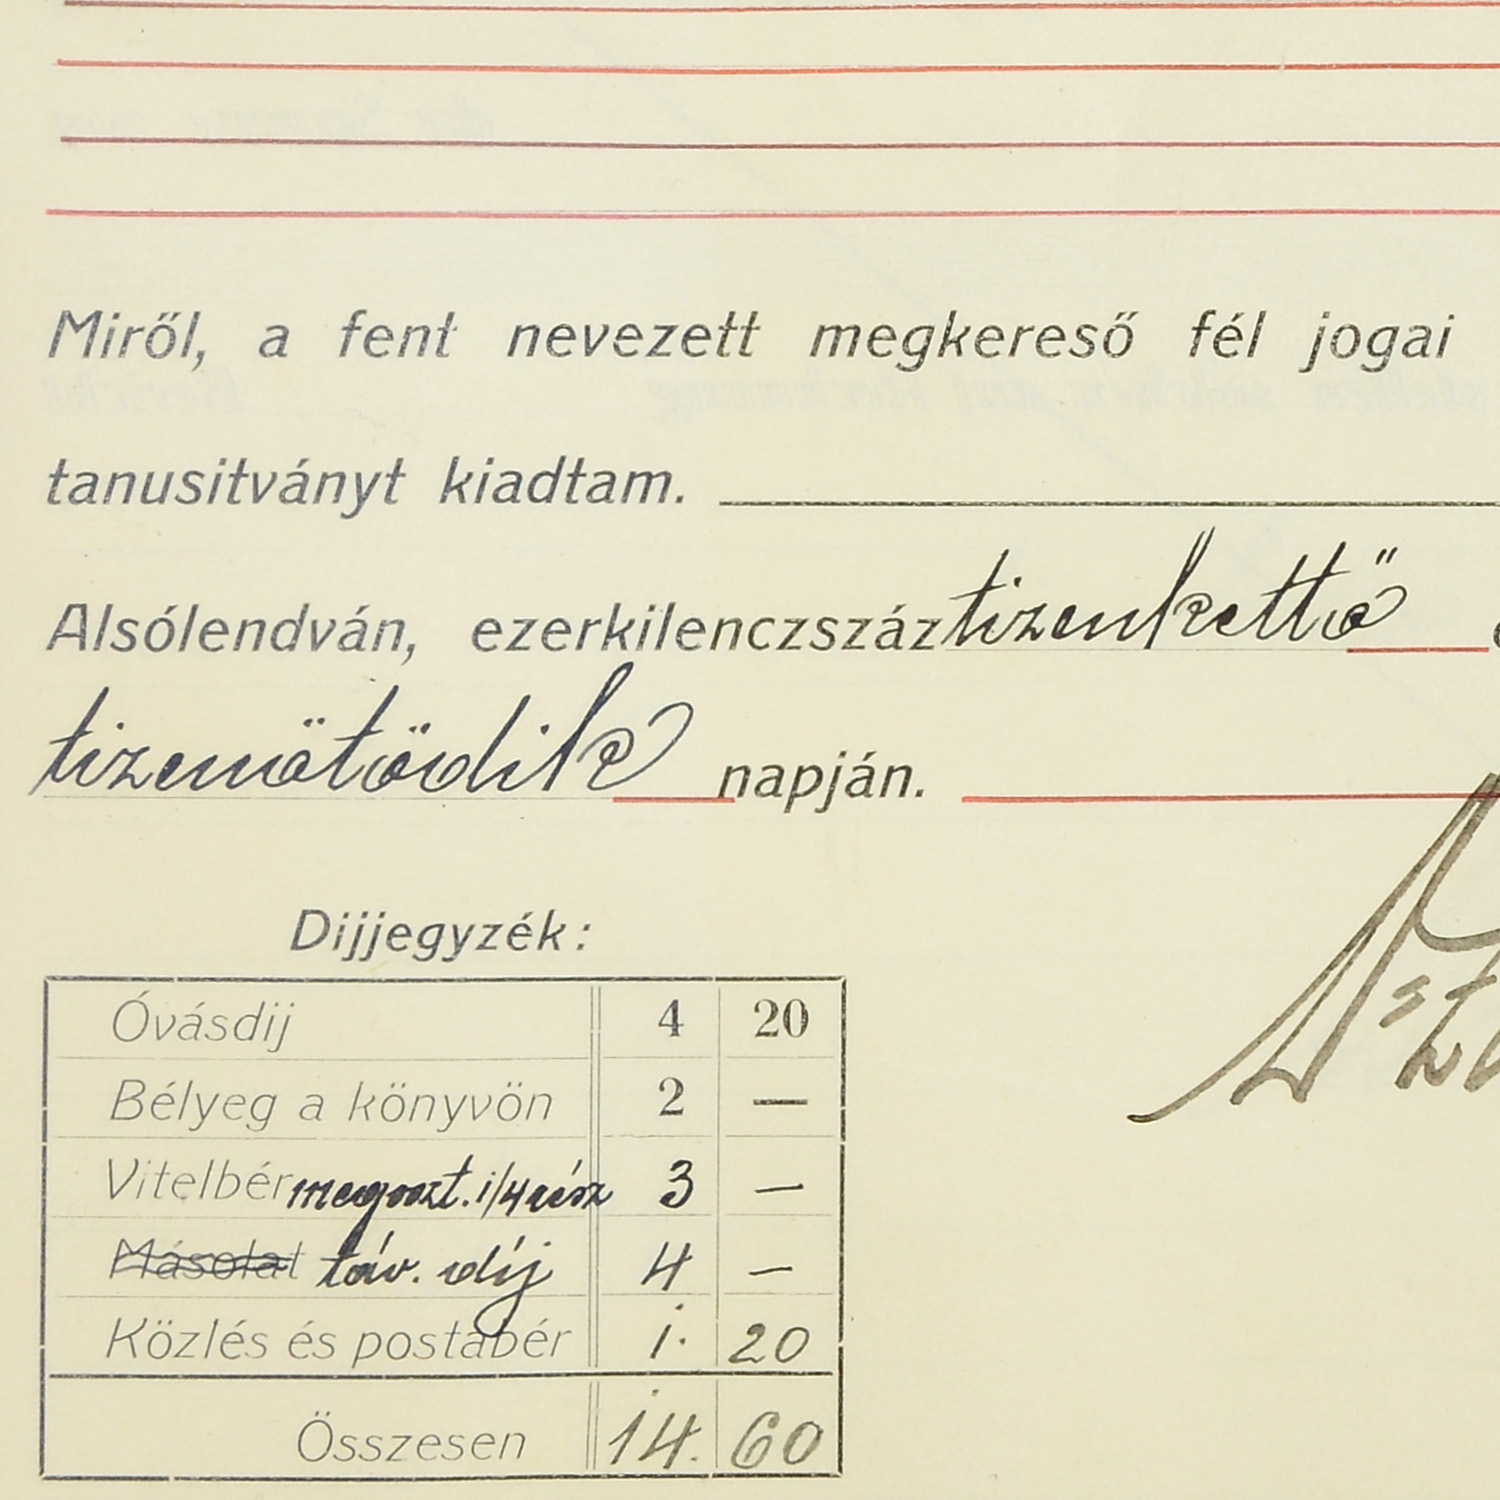 Miről, a fent nevezett megkereső fél jogai
tanusitványt kiadtam.
Alsólendván, ezerkilenczszáz tizenkettő
tizenötödik napján.
Dijjegyzék:
Óvásdij 4 20
Bélyeg a könyvön 2 —
Vitelbér megoszt. 1/4 rész 3 —
Másolat táv. díj 4 —
Közlés és postabér 1. 20
Összesen 14. 60